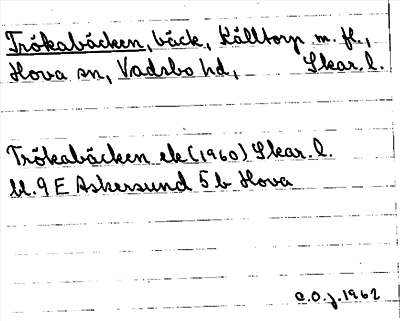 Trökabäcken, bäck, Källtorp m. fl.,
Hova sn, Vadsbo hd, Skar. l.
Trökabäcken ek (1960) Skar. l.
Bl. 9 E Askersund 5 b Hova
C.O.J. 1962